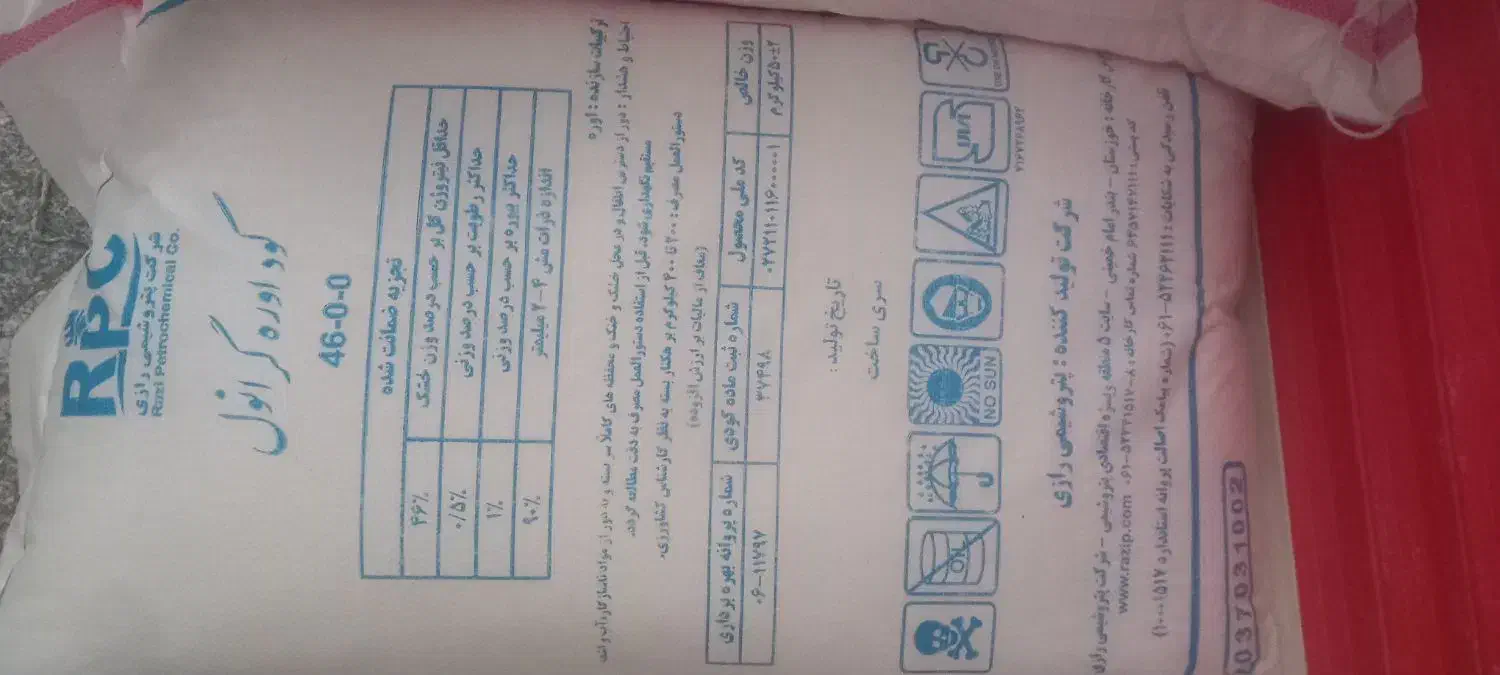 RPC
شرکت پتروشیمی رازی
Razi Petrochemical Co.
کود اوره گرانول
46-0-0
تجزیه ضمانت شده
حداقل نیتروژن کل بر حسب درصد وزن خشک ۴۶٪
حداکثر رطوبت بر حسب درصد وزنی ۰/۵٪
حداکثر بیوره بر حسب درصد وزنی ۱٪
اندازه ذرات مش ۴-۲ میلیمتر ۹۰٪
ترکیبات سازنده : اوره
احتیاط و هشدار : دور از دسترس اطفال و در محل خشک و خنک و محفظه های کاملاً سر بسته و به دور از مواد ناسازگار، آب و
مستقیم نگهداری شود. قبل از استفاده دستورالعمل مصرف به دقت مطالعه گردد.
دستورالعمل مصرف : ۲۰۰ تا ۴۰۰ کیلوگرم بر هکتار بسته به نظر کارشناس کشاورزی.
(معاف از مالیات بر ارزش افزوده)
وزن خالص کد ملی محصول شماره ثبت ماده کودی شماره پروانه بهره برداری
۵۰±۲ کیلوگرم ۰۲۷۲۱۱۰۱۱۶۰۰۰۰۰۱ ۳۷۴۹۸ ۰۶-۱۱۷۹۷
تاریخ تولید :
سری ساخت
NO SUN
OIL
شرکت تولید کننده : پتروشیمی رازی
کارخانه : خوزستان - بندر امام خمینی - سایت ۵ منطقه ویژه اقتصادی پتروشیمی - شرکت پتروشیمی رازی
www.razip.com
تلفن رسیدگی به شکایات : ۰۶۱-۵۲۲۶۲۱۱۱ (شماره پیامک اصالت پروانه استاندارد ۱۰۰۰۱۵۱۷)
1037031002